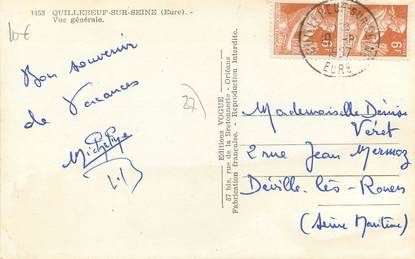 1453 QUILLEBEUF-SUR-SEINE (Eure). -
Vue générale.
10€
Bon souvenir
de Vacances
27)
Editions VOGUE
57 bis, rue de la Bretonnerie - Orléans
Fabrication Française. - Reproduction Interdite.
6F
6F
EURE
Mademoiselle Denise
Véret
2 rue Jean Mermoz
Déville-lès-Rouen
(Seine Maritime)